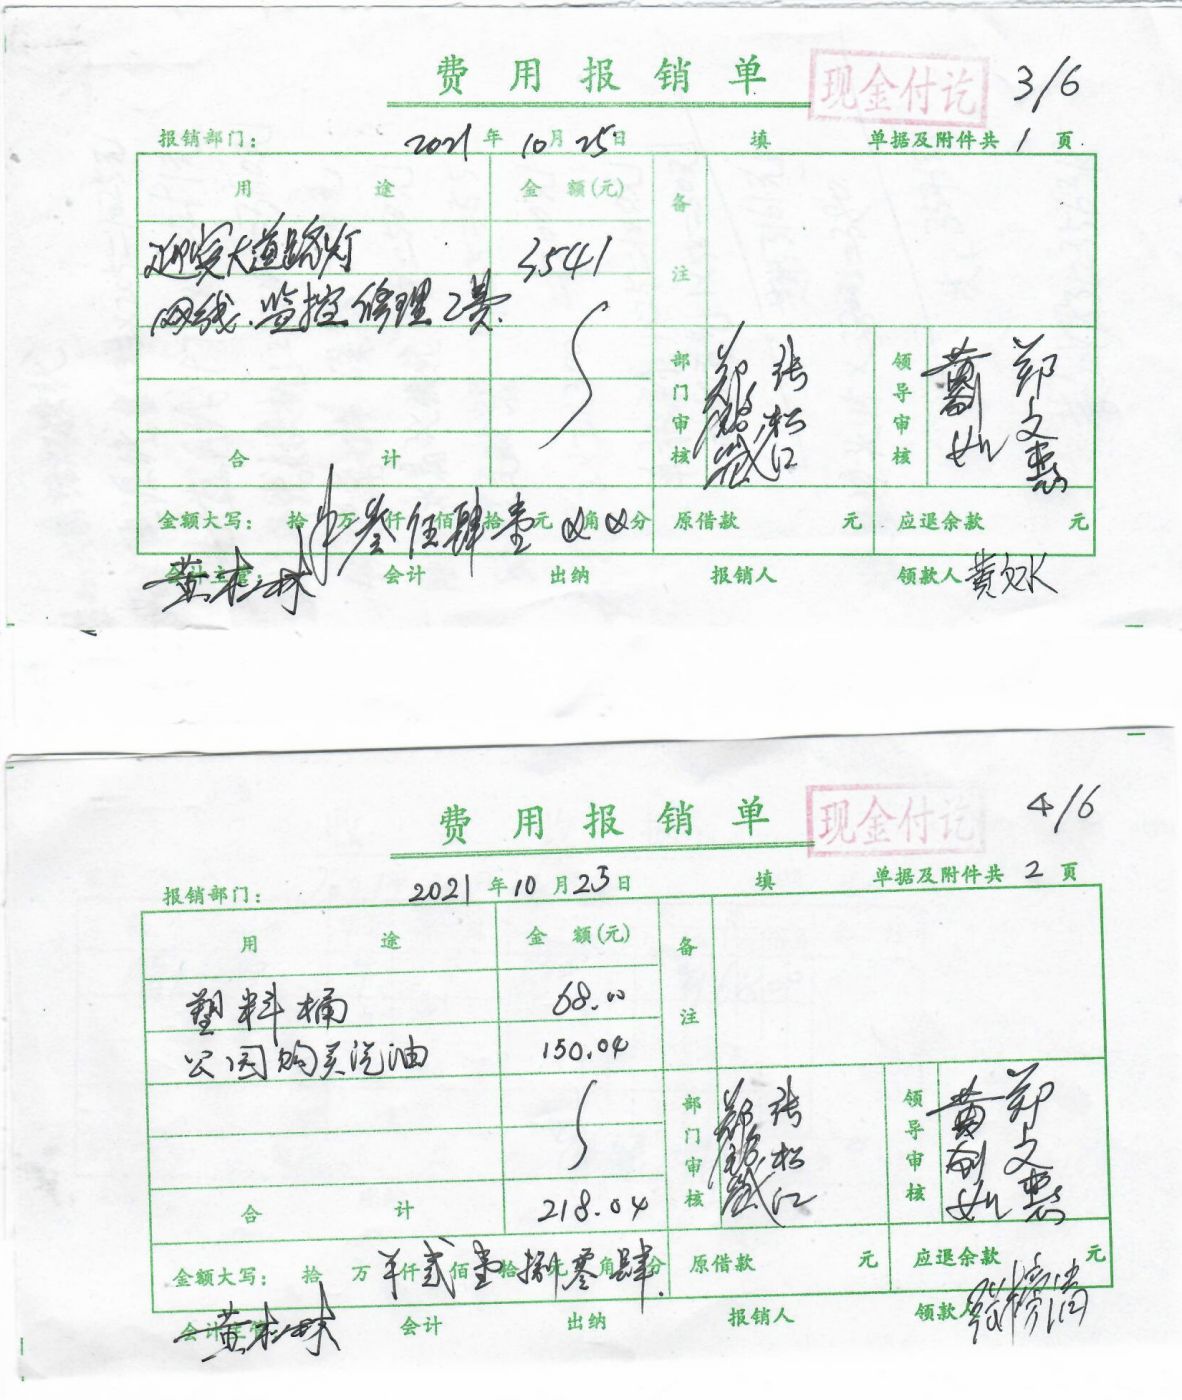 费用报销单 现金付讫 3/6
报销部门： 2021年10月25日 填 单据及附件共1页
用途 金额(元) 备注
迎宾大道路灯 3541
网线、监控修理工费
部门审核 张松江 领导审核 郑文慧
合计
金额大写： 拾万仟叁佰伍拾肆元壹角分 原借款 元 应退余款 元
会计主管： 黄松林 会计 出纳 报销人 领款人
费用报销单 现金付讫 4/6
报销部门： 2021年10月23日 填 单据及附件共2页
用途 金额(元) 备注
塑料桶 68.00
公园购买汽油 150.04
部门审核 张松江 领导审核 郑文慧
合计 218.04
金额大写： 拾万仟贰佰壹拾捌元零角肆分 原借款 元 应退余款 元
会计主管 黄松林 会计 出纳 报销人 领款人